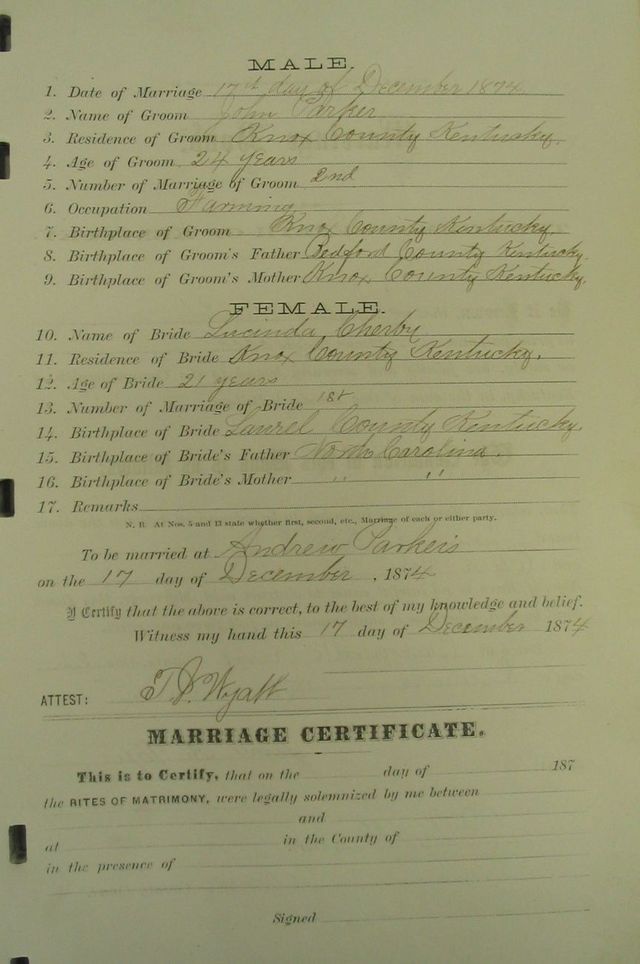 MALE.
1. Date of Marriage 17th day of December 1874
2. Name of Groom John Parker
3. Residence of Groom Knox County Kentucky.
4. Age of Groom 24 years
5. Number of Marriage of Groom 2nd
6. Occupation Farming
7. Birthplace of Groom Knox County Kentucky.
8. Birthplace of Groom's Father Bedford County Kentucky.
9. Birthplace of Groom's Mother Knox County Kentucky.
FEMALE.
10. Name of Bride Lucinda Cherby
11. Residence of Bride Knox County Kentucky.
12. Age of Bride 21 years
13. Number of Marriage of Bride 1st
14. Birthplace of Bride Laurel County Kentucky.
15. Birthplace of Bride's Father North Carolina.
16. Birthplace of Bride's Mother " "
17. Remarks
N. B. At Nos. 5 and 13 state whether first, second, etc., Marriage of each or either party.
To be married at Andrew Parkers
on the 17 day of December, 1874
I Certify that the above is correct, to the best of my knowledge and belief.
Witness my hand this 17 day of December 1874
ATTEST: T. J. Wyatt
MARRIAGE CERTIFICATE.
This is to Certify, that on the day of 187
the RITES OF MATRIMONY, were legally solemnized by me between
and
at in the County of
in the presence of
Signed